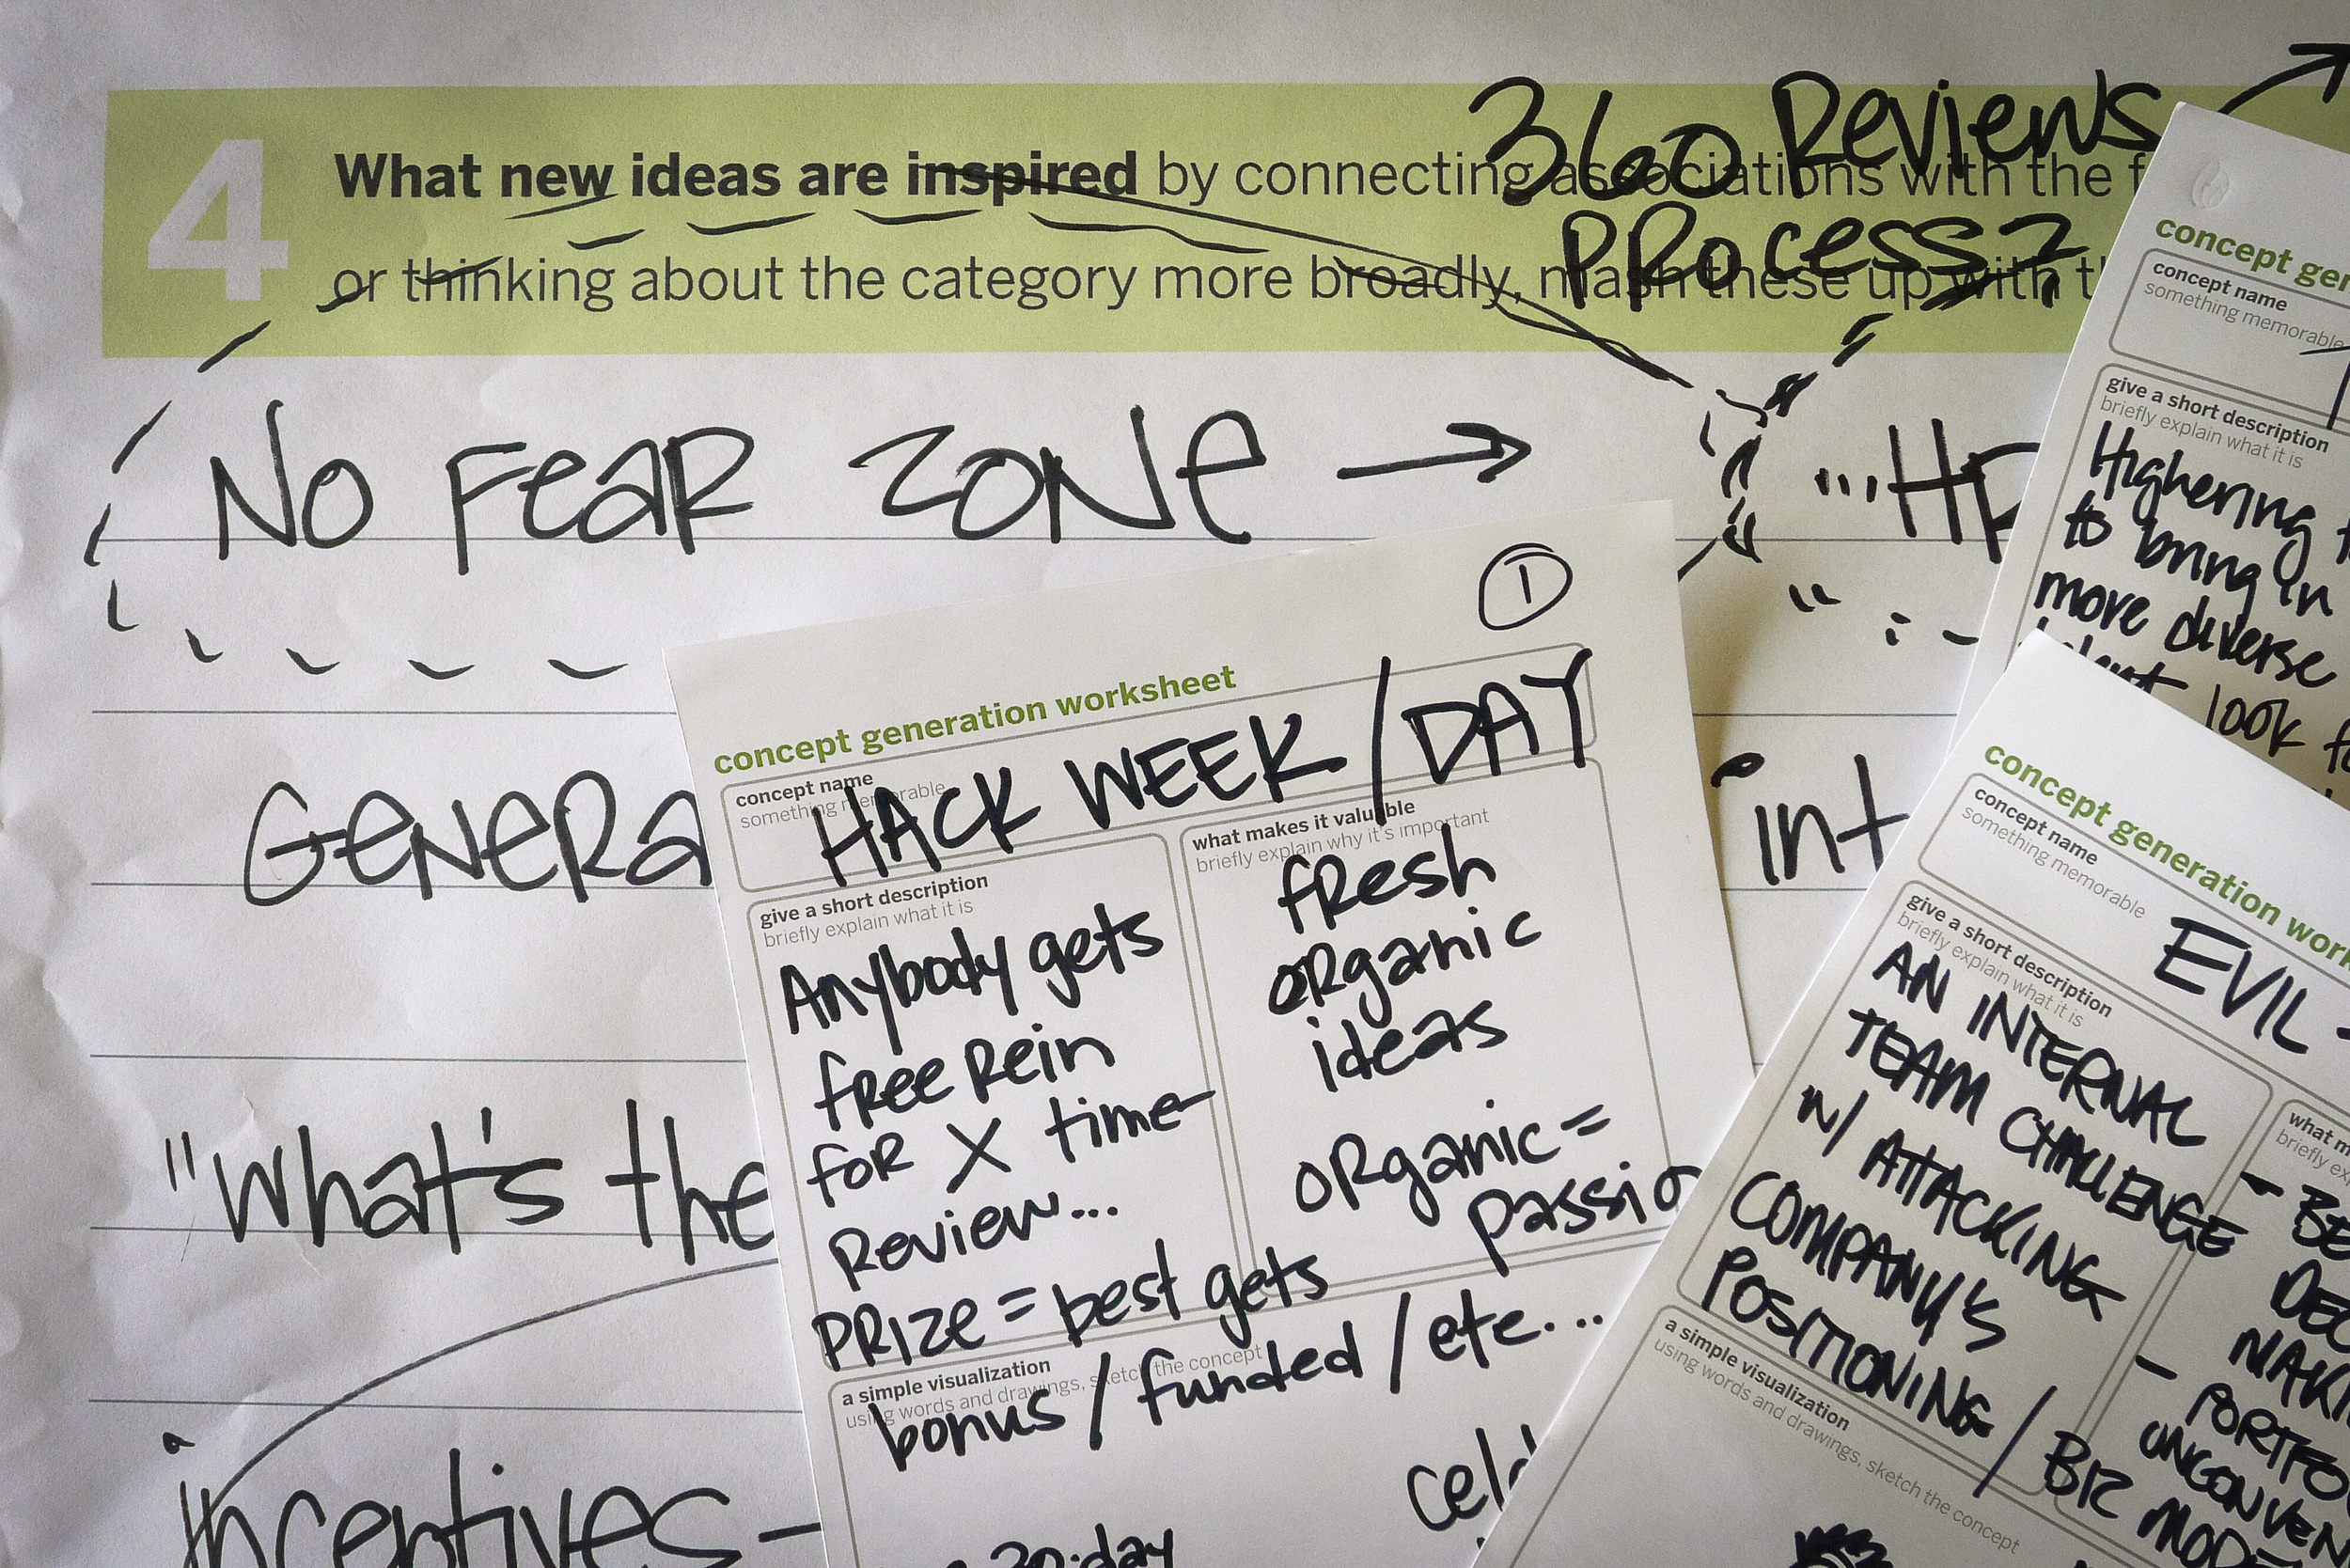 360 Reviews
Process?
4
What new ideas are inspired by connecting associations with the
or thinking about the category more broadly, mash these up with
No Fear Zone →
Genera
int
"What's the
incentives-
①
concept generation worksheet
concept name
something memorable
HACK WEEK / DAY
give a short description
briefly explain what it is
Anybody gets
free rein
for X time
Review...
PRIZE = best gets
bonus / funded / etc...
what makes it valuable
briefly explain why it's important
fresh
organic
ideas
organic =
passio
a simple visualization
using words and drawings, sketch the concept
30:day
concept gen
concept name
something memorable
give a short description
briefly explain what it is
Highering
to bring in
more diverse
look
concept generation work
concept name
something memorable
EVIL
give a short description
briefly explain what it is
AN INTERNAL
TEAM CHALLENGE
w/ ATTACKING
COMPANY'S
POSITIONING / BIZ
what m
briefly ex
- BE
DEC
MAKI
- PORTFO
UNCONVEN
a simple visualization
using words and drawings, sketch the concept